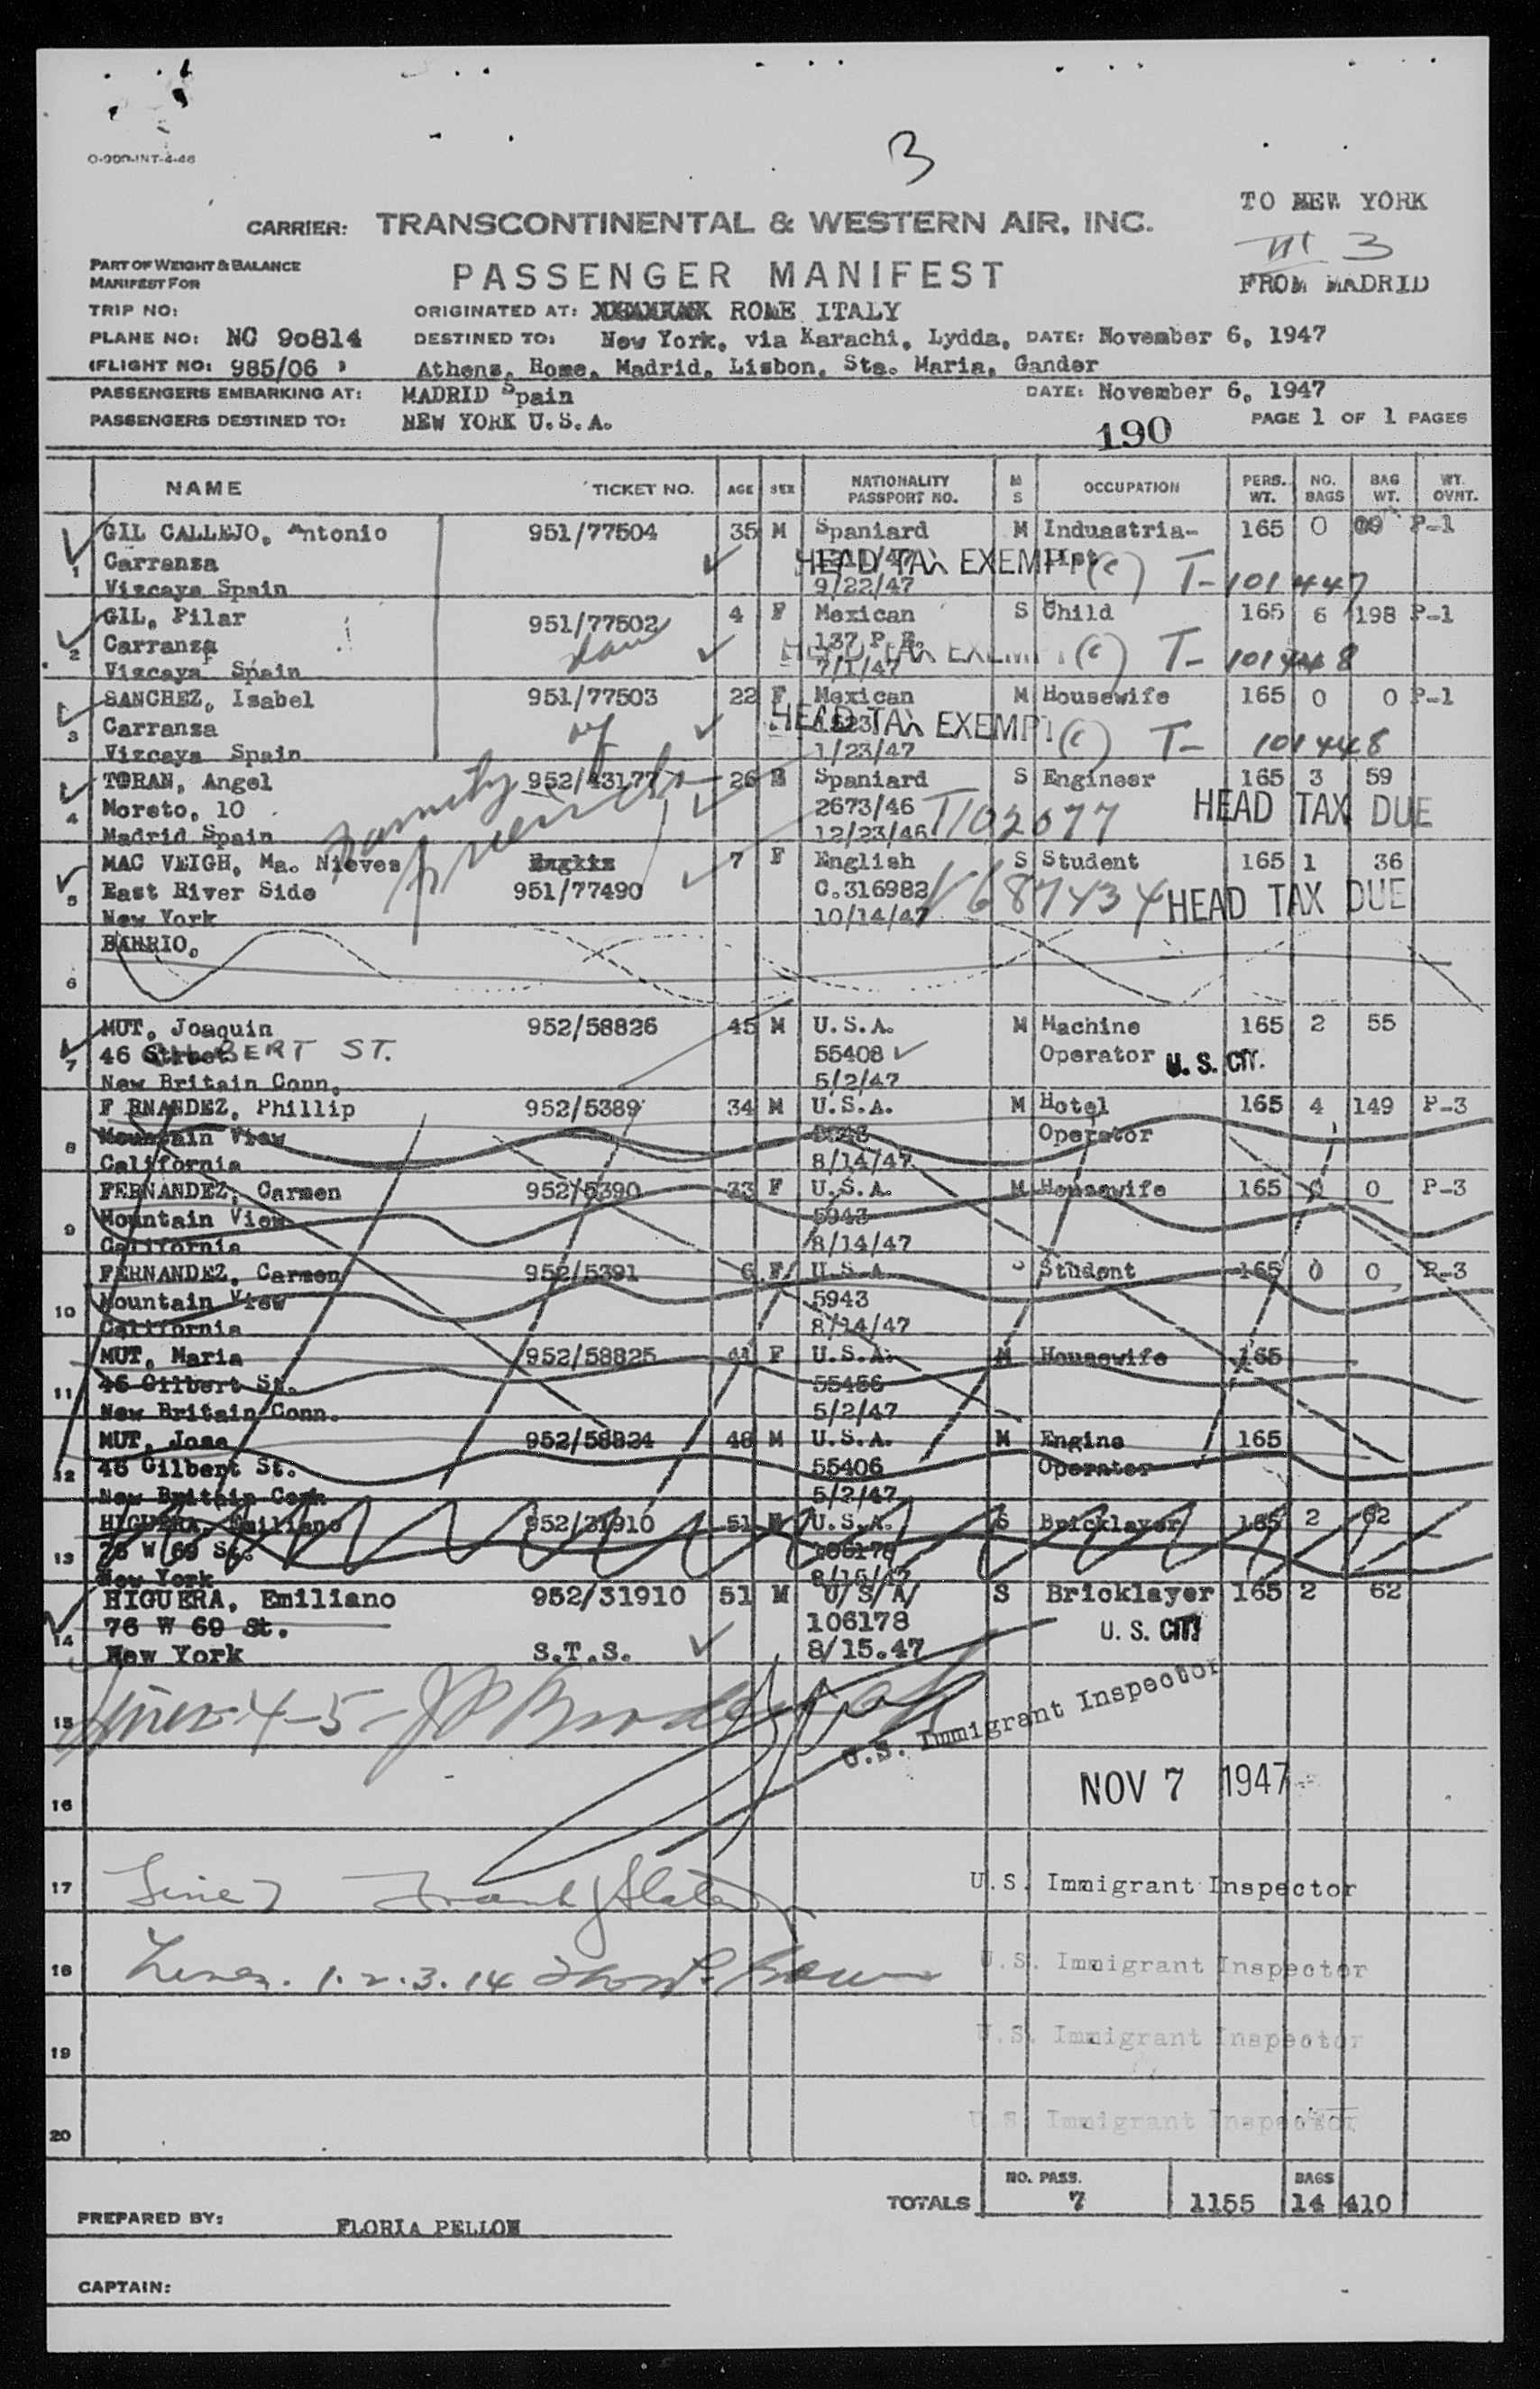 O-900-INT-4-46
3
TO NEW YORK
CARRIER: TRANSCONTINENTAL & WESTERN AIR, INC.
III 3
PART OF WEIGHT & BALANCE
MANIFEST FOR
PASSENGER MANIFEST
FROM MADRID
TRIP NO:
ORIGINATED AT: ROME ITALY
PLANE NO: NC 90814
DESTINED TO: New York, via Karachi, Lydda, DATE: November 6, 1947
(FLIGHT NO: 985/06 )
Athens, Rome, Madrid, Lisbon, Sta. Maria, Gander
PASSENGERS EMBARKING AT: MADRID Spain DATE: November 6, 1947
PASSENGERS DESTINED TO: NEW YORK U.S.A. 190 PAGE 1 OF 1 PAGES
NAME TICKET NO. AGE SEX NATIONALITY PASSPORT NO. M S OCCUPATION PERS. WT. NO. BAGS BAG WT. WT. OVNT.
GIL CALLEJO, Antonio 951/77504 35 M Spaniard M Induastria- 165 0 P-1
1 Carranza HEAD TAX EXEMPT (c) T-101447
Vizcaya Spain 9/22/47
GIL, Pilar 951/77502 4 F Mexican S Child 165 6 198 P-1
2 Carranza 137 P.E. HEAD TAX EXEMPT (c) T-101448
Vizcaya Spain 7/1/47
SANCHEZ, Isabel 951/77503 22 F Mexican M Housewife 165 0 0 P-1
3 Carranza of HEAD TAX EXEMPT (c) T-101448
Vizcaya Spain 1/23/47
TORAN, Angel 952/43177 26 Spaniard S Engineer 165 3 59
4 Moreto, 10 family 2673/46 T102077 HEAD TAX DUE
Madrid Spain friends 12/23/46
MAC VEIGH, Ma. Nieves 7 F English S Student 165 1 36
5 East River Side 951/77490 C.316982 V687434 HEAD TAX DUE
New York 10/14/47
BARRIO,
6
MUT, Joaquin 952/58826 45 M U.S.A. M Machine 165 2 55
7 46 Street BERT ST. 55408 Operator U. S. CIT.
New Britain Conn. 5/2/47
F RNANDEZ, Phillip 952/5389 34 M U.S.A. M Hotel 165 4 149 P-3
8 Mountain View Operator
California 8/14/47
FERNANDEZ, Carmen 952/5390 33 F U.S.A. M Housewife 165 0 0 P-3
9 Mountain View 5943
California 8/14/47
FERNANDEZ, Carmen 952/5391 6 F U.S.A Student 165 0 0 P-3
10 Mountain View 5943
California 8/14/47
MUT, Maria 952/58825 41 F U.S.A. M Housewife 165
11 46 Gilbert St. 55456
New Britain Conn. 5/2/47
MUT, Jose 952/58824 48 M U.S.A. M Engine 165
12 46 Gilbert St. 55406 Operator
New Britain Conn 5/2/47
HIGUERA, Emiliano 952/31910 51 M U.S.A. S Bricklayer 165 2 62
13 76 W 69 St. 106178
New York 8/15/47
HIGUERA, Emiliano 952/31910 51 M U/S/A/ S Bricklayer 165 2 62
14 76 W 69 St. 106178 U. S. CIT
New York S.T.S. 8/15.47
15 Lines 4-5- U.S. Immigrant Inspector
NOV 7 1947
16
17 Line 7 Frank J Slater U.S. Immigrant Inspector
18 Lines. 1.2.3.14 U.S. Immigrant Inspector
19 U.S. Immigrant Inspector
20 U.S. Immigrant Inspector
NO. PASS. BAGS
TOTALS 7 1155 14 410
PREPARED BY: FLORIA PELLON
CAPTAIN: